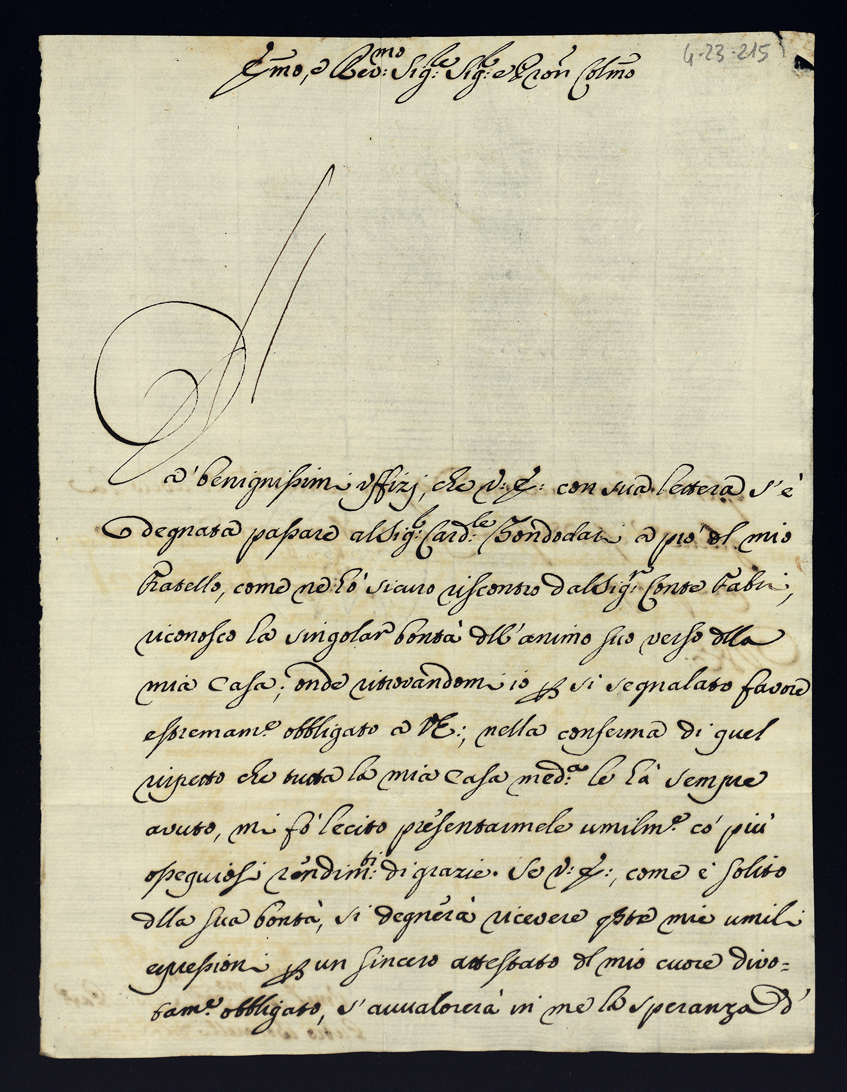 4-23-215
Emo, e Revmo: Sigle: Sigle: e Pron Colmo
Da' benignissimi uffizj, che V: E: con sua lettera s'è
degnata passare al Sigr: Cardle: Bondodati a pro' del mio
Fratello, come ne hò sicuro riscontro dal Sigr: Conte Fabri,
riconosco la singolar bontà dell'animo suo verso della
mia Casa; onde ritrovandomi io per si segnalato favore
estremame: obbligato a VE:, nella conferma di quel
rispetto che tutta la mia Casa meda: le hà sempre
avuto, mi fò lecito presentarmele umilme: co' più
ossequiosi rendimti: di grazie. Se V: E:, come è solito
della sua bontà, si degnerà ricevere queste mie umili
espressioni per un sincero attestato del mio cuore divo=
tame: obbligato, s'avvalorerà in me la speranza d'